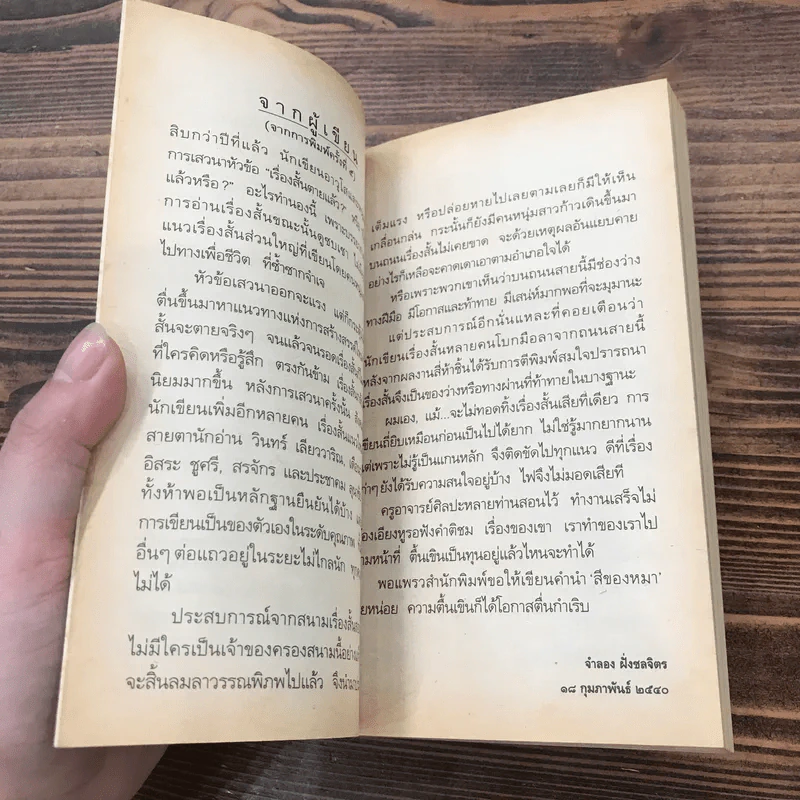 จากผู้เขียน
(จากการพิมพ์ครั้งที่ ๕)
สิบกว่าปีที่แล้ว นักเขียนอาวุโส
การเสวนาหัวข้อ "เรื่องสั้นตายแล้ว?"
แล้วหรือ?" อะไรทำนองนี้ เพราะ
การอ่านเรื่องสั้นขณะนั้นดูซบเซา
แนวเรื่องสั้นส่วนใหญ่ที่เขียนโดย
ไปทางเพื่อชีวิต ที่ซ้ำซากจำเจ
หัวข้อเสวนาออกจะแรง แต่ก็
ตื่นขึ้นมาหาแนวทางแห่งการสร้างสรรค์
สั้นจะตายจริงๆ จนแล้วจนรอดเรื่องสั้น
ที่ใครคิดหรือรู้สึก ตรงกันข้าม เรื่องสั้น
นิยมมากขึ้น หลังการเสวนาครั้งนั้น
นักเขียนเพิ่มอีกหลายคน เรื่องสั้น
สายตานักอ่าน วินทร์ เลียววาริณ,
อิสระ ชูศรี, สรจักร และประชาคม
ทั้งห้าพอเป็นหลักฐานยืนยันได้บ้าง
การเขียนเป็นของตัวเองในระดับคุณภาพ
อื่นๆ ต่อแถวอยู่ในระยะไม่ไกลนัก
ไม่ได้
ประสบการณ์จากสนามเรื่องสั้น
ไม่มีใครเป็นเจ้าของครองสนามนี้อย่าง
จะสิ้นลมลาวรรณพิภพไปแล้ว จึง
เต็มแรง หรือปล่อยทายไปเลยตามเลยก็มีให้เห็น
เกลื่อนกล่น กระนั้นก็ยังมีคนหนุ่มสาวก้าวเดินขึ้นมา
บนถนนเรื่องสั้นไม่เคยขาด จะด้วยเหตุผลอันแยบคาย
อย่างไรก็เหลือจะคาดเดาเอาตามอำเภอใจได้
หรือเพราะพวกเขาเห็นว่าบนถนนสายนี้มีช่องว่าง
ทางฝีมือ มีโอกาสและท้าทาย มีเสน่ห์มากพอที่จะมุมานะ
แต่ประสบการณ์อีกนั่นแหละที่คอยเตือนว่า
นักเขียนเรื่องสั้นหลายคนโบกมือลาจากถนนสายนี้
หลังจากผลงานสี่ห้าชิ้นได้รับการตีพิมพ์สมใจปรารถนา
เรื่องสั้นจึงเป็นของว่างหรือทางผ่านที่ท้าทายในบางฐานะ
ผมเอง, แม้...จะไม่ทอดทิ้งเรื่องสั้นเสียทีเดียว การ
เขียนถี่ยิบเหมือนก่อนเป็นไปได้ยาก ไม่ใช่รู้มากยากนาน
แต่เพราะไม่รู้เป็นแกนหลัก จึงติดขัดไปทุกแนว ดีที่เรื่อง
ว่าๆ ยังได้รับความสนใจอยู่บ้าง ไฟจึงไม่มอดเสียที
ครูอาจารย์ศิลปะหลายท่านสอนไว้ ทำงานเสร็จไม่
ต้องเอียงหูรอฟังคำติชม เรื่องของเขา เราทำของเราไป
ตามหน้าที่ ตื้นเขินเป็นทุนอยู่แล้วไหนจะทำได้
พอแพรวสำนักพิมพ์ขอให้เขียนคำนำ 'สีของหมา'
หน่อย ความตื้นเขินก็ได้โอกาสตื่นกำเริบ
จำลอง ฝั่งชลจิตร
๑๘ กุมภาพันธ์ ๒๕๔๐